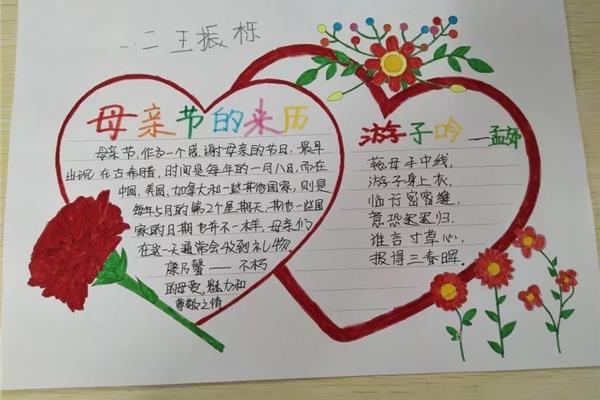 一.二王振栎
母亲节的来历
母亲节,作为一个感谢母亲的节日,最早
出现在古希腊,时间是每年的一月八日,而在
中国、美国、加拿大和一些其他国家,则是
每年5月的第2个星期天,其他一些国
家的日期也并不一样,母亲们
在这一天通常会收到礼物.
康乃馨——不朽
的母爱,魅力和
尊敬之情
游子吟 —孟郊
慈母手中线,
游子身上衣,
临行密密缝,
意恐迟迟归.
谁言寸草心,
报得三春晖.